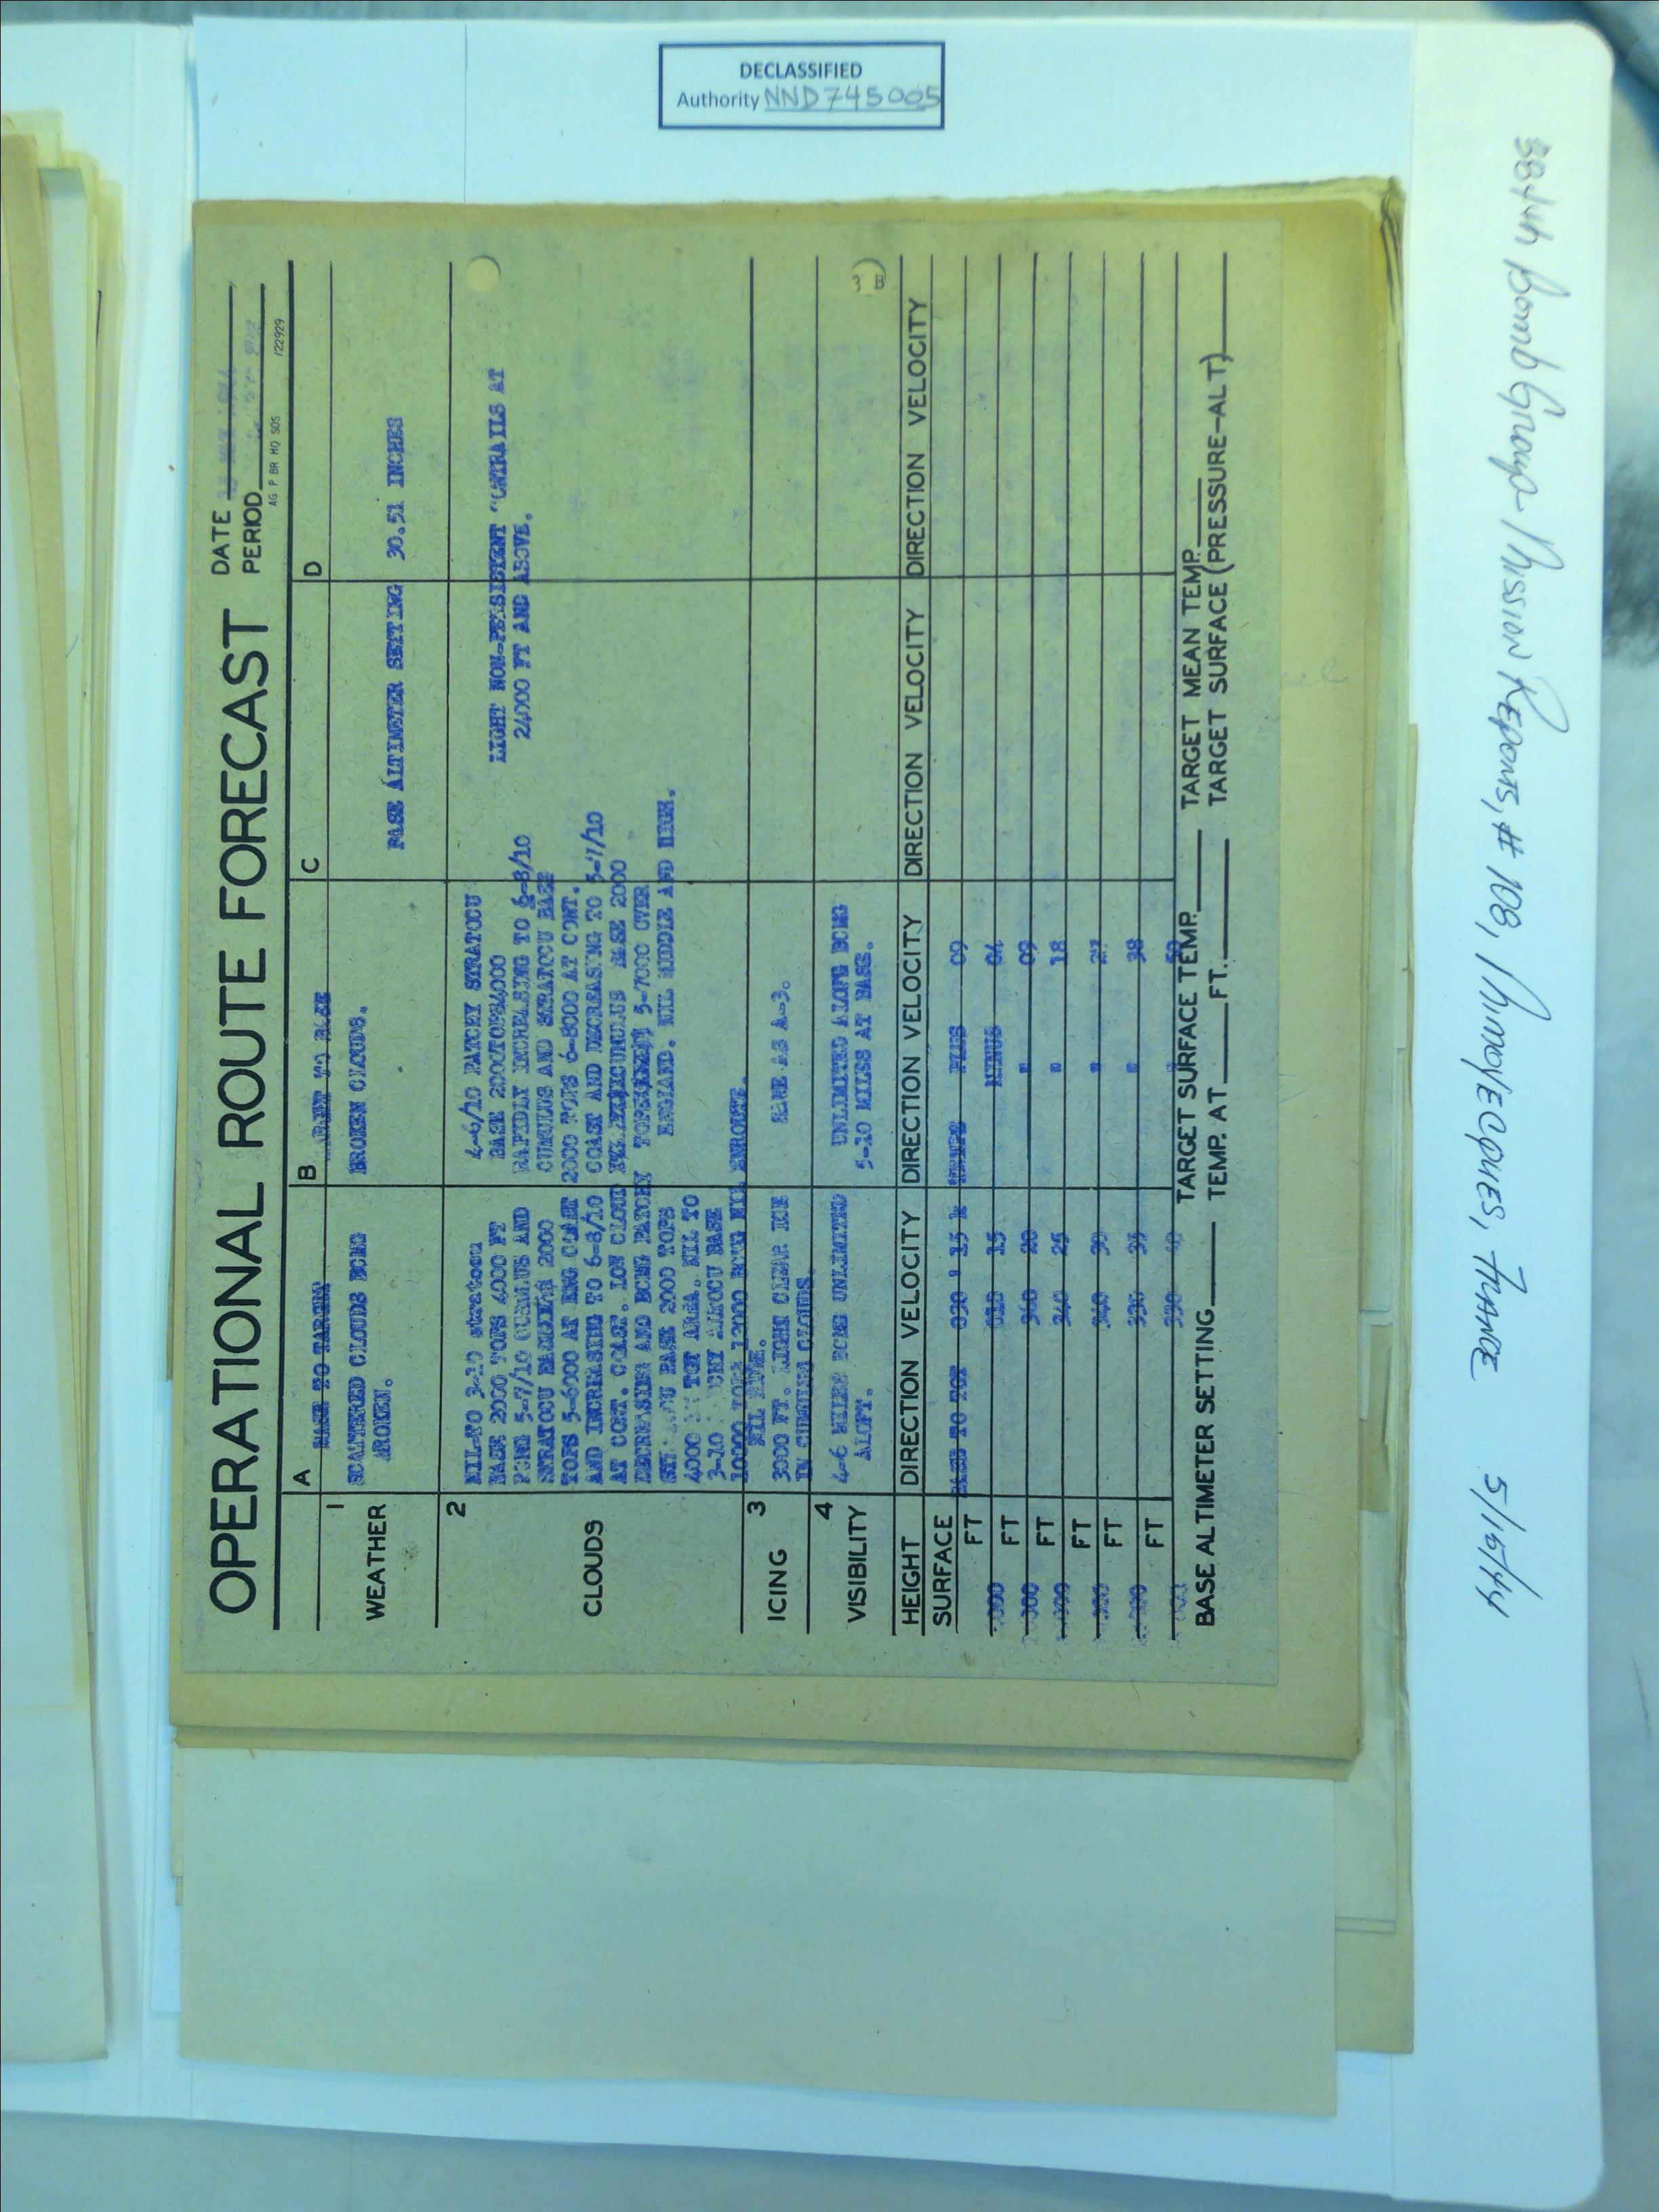 DECLASSIFIED
Authority NND745005
OPERATIONAL ROUTE FORECAST
DATE
PERIOD
AG P BR HQ SOS 122929
A B C D
BASE TO TARGET
TO BASE
1
WEATHER
SCATTERED CLOUDS BCMG
BROKEN.
BROKEN CLOUDS.
BASE ALTIMETER SETTING 30.51 INCHES
2
CLOUDS
NIL-TO 3-10 stratocu
BASE 2000 TOPS 4000 FT
5-7/10 CUMULUS AND
STRATOCU 2000
TOPS 5-6000 AT ENG COAST
AND INCREASING TO 6-8/10
AT CONT. COAST. LOW CLOUD
DECREASING AND BCMG PATCHY
BASE 2000 TOPS
4000 TGT AREA. NIL TO
3-10 ALTOCU BASE
10000 TOPS 12000 BCMG NIL ENROUTE.
4-6/10 PATCHY STRATOCU
BASE 2000TOPS4000
RAPIDLY INCREASING TO 6-8/10
CUMULUS AND STRATOCU BASE
2000 TOPS 6-8000 AT CONT.
COAST AND DECREASING TO 5-7/10
CUMULUS BASE 2000
TOPS 5-7000 OVER
ENGLAND. NIL MIDDLE AND HIGH.
LIGHT NON-PERSISTENT CNTRAILS AT
24000 FT AND ABOVE.
3
ICING
NIL
3000 FT. LIGHT CLEAR ICE
IN CUMULUS CLOUDS.
SAME AS A-3.
4
VISIBILITY
4-6 MILES BCMG UNLIMITED
ALOFT.
UNLIMITED ALOFT BCMG
5-10 MILES AT BASE.
HEIGHT DIRECTION VELOCITY DIRECTION VELOCITY DIRECTION VELOCITY DIRECTION VELOCITY
SURFACE
BASE TO TGT 030 ° 15 k TEMPS PLUS 09
FT
010 15 MINUS 04
FT
360 20 " 09
FT
340 25 " 18
FT
340 30 " 27
FT
330 35 " 38
FT
330 40
BASE ALTIMETER SETTING
TARGET SURFACE TEMP. TARGET MEAN TEMP.
TEMP. AT FT. TARGET SURFACE (PRESSURE-ALT)
384th Bomb Group - Mission Reports, # 108, Mimoyecques, France 5/15/44